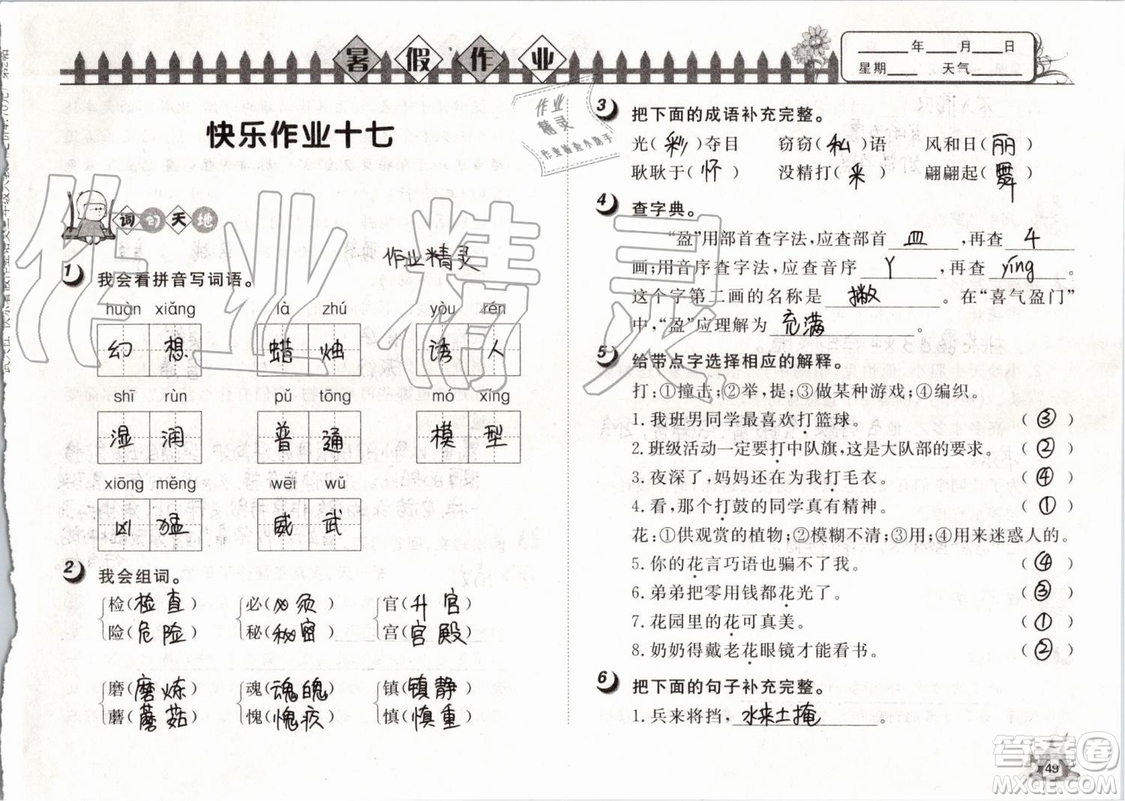 暑假作业
____年____月____日
星期____ 天气____
快乐作业十七
词句天地
作业精灵
1 我会看拼音写词语。
huàn xiǎng là zhú yòu rén
幻想 蜡烛 诱人
shī rùn pǔ tōng mó xíng
湿润 普通 模型
xiōng měng wēi wǔ
凶猛 威武
2 我会组词。
检(检直) 必(必须) 官(升官)
险(危险) 秘(秘密) 宫(宫殿)
磨(磨炼) 魂(魂魄) 镇(镇静)
蘑(蘑菇) 愧(愧疚) 慎(慎重)
3 把下面的成语补充完整。
光(彩)夺目 窃窃(私)语 风和日(丽)
耿耿于(怀) 没精打(采) 翩翩起(舞)
4 查字典。
“盈”用部首查字法,应查部首 皿 ,再查 4
画;用音序查字法,应查音序 Y ,再查 yíng 。
这个字第二画的名称是 撇 。在“喜气盈门”
中,“盈”应理解为 充满 。
5 给带点字选择相应的解释。
打:①撞击;②举,提;③做某种游戏;④编织。
1.我班男同学最喜欢打篮球。 (③)
2.班级活动一定要打中队旗,这是大队部的要求。 (②)
3.夜深了,妈妈还在为我打毛衣。 (④)
4.看,那个打鼓的小男孩真有精神。 (①)
花:①供观赏的植物;②模糊不清;③用;④用来迷惑人的。
5.你的花言巧语也骗不了我。 (④)
6.弟弟把零用钱都花光了。 (③)
7.花园里的花可真美。 (①)
8.奶奶得戴老花眼镜才能看书。 (②)
6 把下面的句子补充完整。
1.兵来将挡, 水来土掩
49
作业精灵
答案圈
MXQE.COM